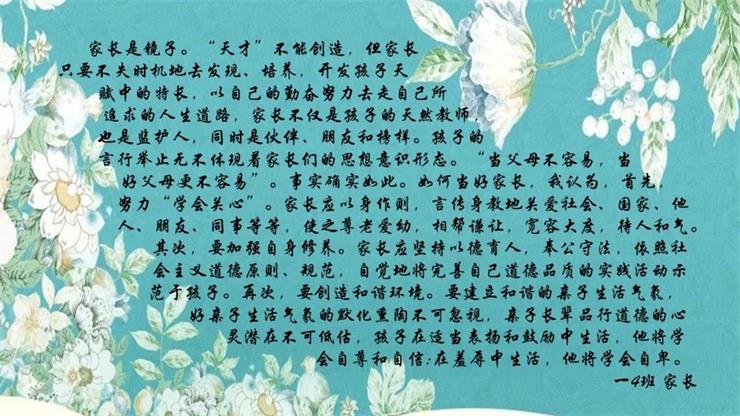 家长是镜子。“天才”不能创造，但家长
只要不失时机地去发现、培养，开发孩子天
赋中的特长，以自己的勤奋努力去走自己所
追求的人生道路，家长不仅是孩子的天然教师，
也是监护人，同时是伙伴、朋友和榜样。孩子的
言行举止无不体现着家长们的思想意识形态。“当父母不容易，当
好父母更不容易”。事实确实如此。如何当好家长，我认为，首先，
努力“学会关心”。家长应以身作则，言传身教地关爱社会、国家、他
人、朋友、同事等等，使之尊老爱幼，相帮谦让，宽容大度，待人和气。
其次，要加强自身修养。家长应坚持以德育人，奉公守法，依照社
会主义道德原则、规范，自觉地将完善自己道德品质的实践活动示
范于孩子。再次，要创造和谐环境。要建立和谐的亲子生活气氛，
好亲子生活气氛的默化熏陶不可忽视，亲子长辈品行道德的心
灵潜在不可低估，孩子在适当表扬和鼓励中生活，他将学
会自尊和自信:在羞辱中生活，他将学会自卑。
一4班 家长